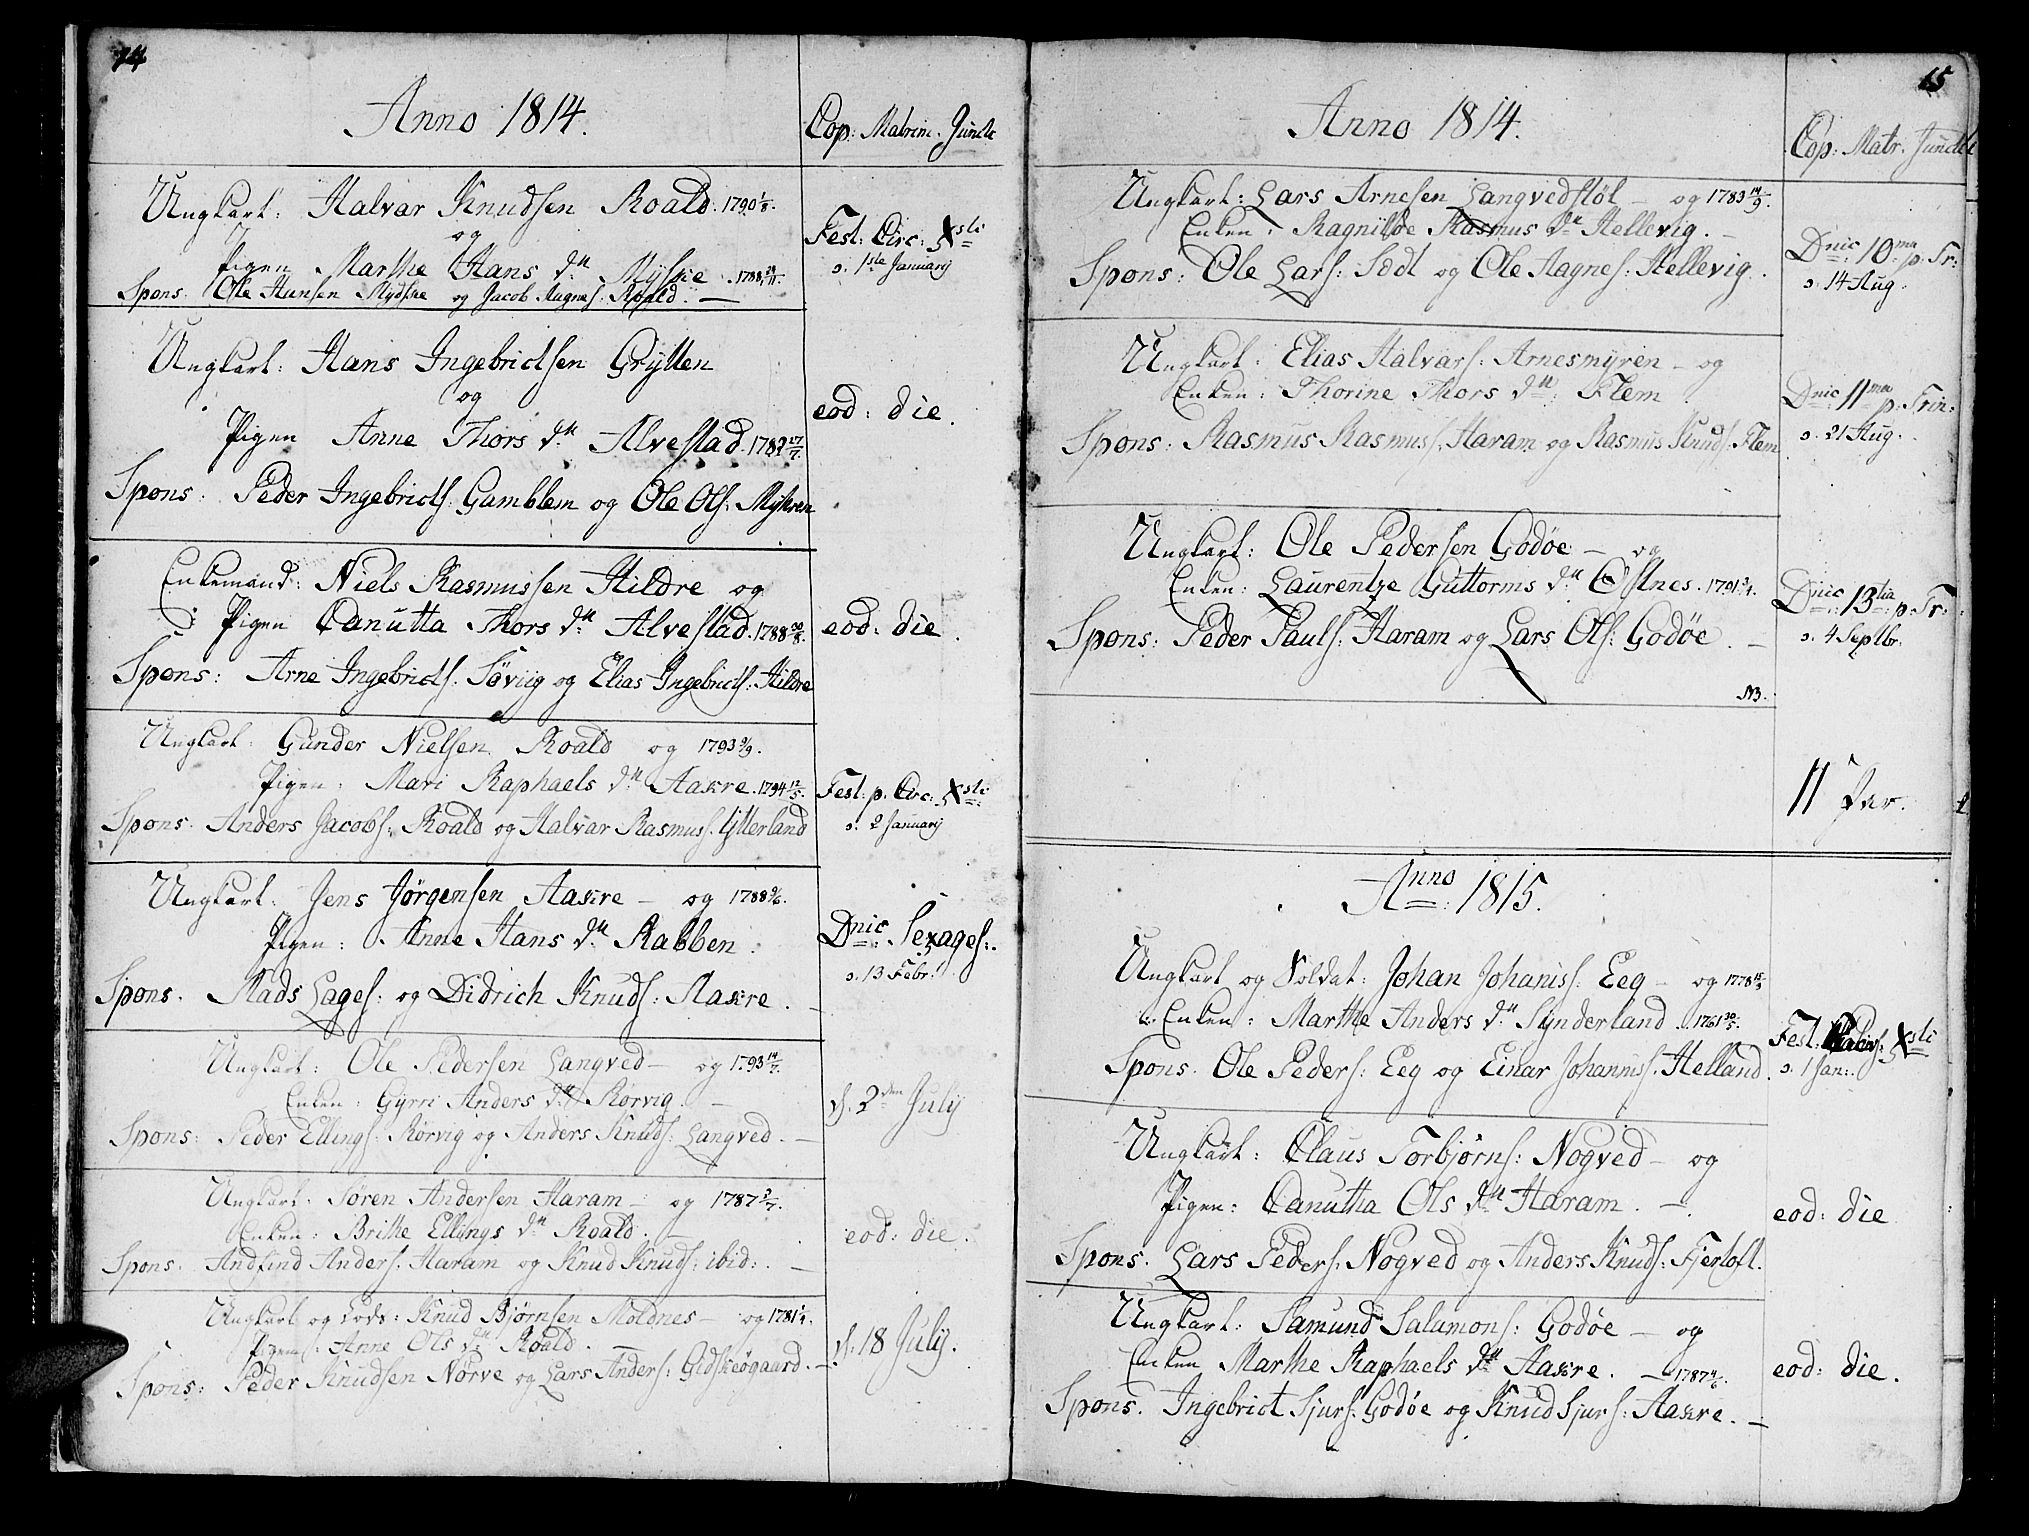 14
Anno 1814.
Cop: Matrim. Juncti
Ungkarl: Halvar Knudsen Roald. 1790 1/8.
og
Pigen Marthe Hans d.tr Myskie. 1788, 29/11.
Spons. Ole Hansen Mydskie og Jacob Aagnes: Roald. —
Fest: Circ: Xsti
d: 1ste January
Ungkarl: Hans Ingebrictsen Grytten
og
Pigen Anne Thors d.tr Alvestad. 1782 17/7.
Spons: Peder Ingebricts: Gamblem og Ole Ols: Myhren
eod: die.
Enkemand: Niels Rasmussen Hildre og
Pigen Canutta Thors d.tr Alvestad. 1788 20/8.
Spons: Arne Ingebricts: Søviig og Elias Ingebricts: Hildre
eod: die.
Ungkarl: Gunder Nielsen Roald og 1793 9/9.
Pigen: Mari Raphaels d.tr Aakre. 1794 12/5.
Spons. Anders Jacobs: Roald og Halvar Rasmuss. Ytterland
Fest: p. Circ: Xsti
d. 2 January
Ungkarl: Jens Jørgensen Aakre — og 1788 9/6.
Pigen: Anne Hans d.tr Rabben.
Spons. Mads Lages: og Didrich Knuds: Aakre. —
Dnic: Sexages:
d. 13 Febr:
Ungkarl: Ole Pedersen Langved — og 1793 14/7.
Enken: Gyrri Anders d.tr Rørvig. —
Spons: Peder Ellings: Rørvig og Anders Knuds: Langved. —
d. 2den July
Ungkarl: Søren Andersen Haram — og 1787 3/7.
Enken: Brithe Ellings d.tr Roald. —
Spons. Andfind Anders. Haram og Knud Knuds: ibid: . —
eod: die.
Ungkarl og Lods: Knud Bjørnsen Moldnes — og 1781 1/4.
Pigen: Anne Ols d.tr Roald. —
Spons: Peder Knudsen Nørve og Lars Anders: Gidskeøgaard. —
d. 18 July.
15
Anno 1814.
Cop: Matr. Juncti
Ungkarl: Lars Arnesen Langvedstøl — og 1783 14/9.
Enken: Ragnilde Rasmus d.tr Hellevig. —
Spons: Ole Lars: Sædt og Ole Aagnes: Hellevig.
Dnic: 10ma p. Tr:
d. 14 Aug.
Ungkarl: Elias Halvars: Arnesmyren — og
Enken: Thorine Thors d.tr: Flem
Spons: Rasmus Rasmuss. Haram og Rasmus Knuds. Flem
Dnic: 11ma p: Trin:
d. 21 Aug.
Ungkarl: Ole Pedersen Godøe — og
Enken: Laurentze Guttorms d.tr Østnes. 1791 3/4.
Spons: Peder Pauls: Haram og Lars Ols: Godøe. —
NB.
Dnic: 13tia p. Tr:
d. 4 Septbr.
11 Par.
Anno 1815.
Ungkarl og Soldat: Johan Johanis: Eeg — og 1778 15/3
Enken: Marthe Anders d.tr Synderland. 1761 30/5.
Spons. Ole Peders: Eeg og Einar Johannis: Helland.
Fest. Xsti
d. 1 Jan:
Ungkarl: Claus Torbjørns: Nogved — og
Pigen: Canutha Ols d.tr Haram. —
Spons. Lars Peders: Nogved og Anders Knuds: Fjertoft.
eod: die
Ungkarl: Samund Salamons: Godøe — og
Enken Marthe Raphaels d.tr Aakre. — 1787 4/6.
Spons. Ingebrict Sjurs. Godøe og Knud Sjurs: Aakre. —
eod: die.